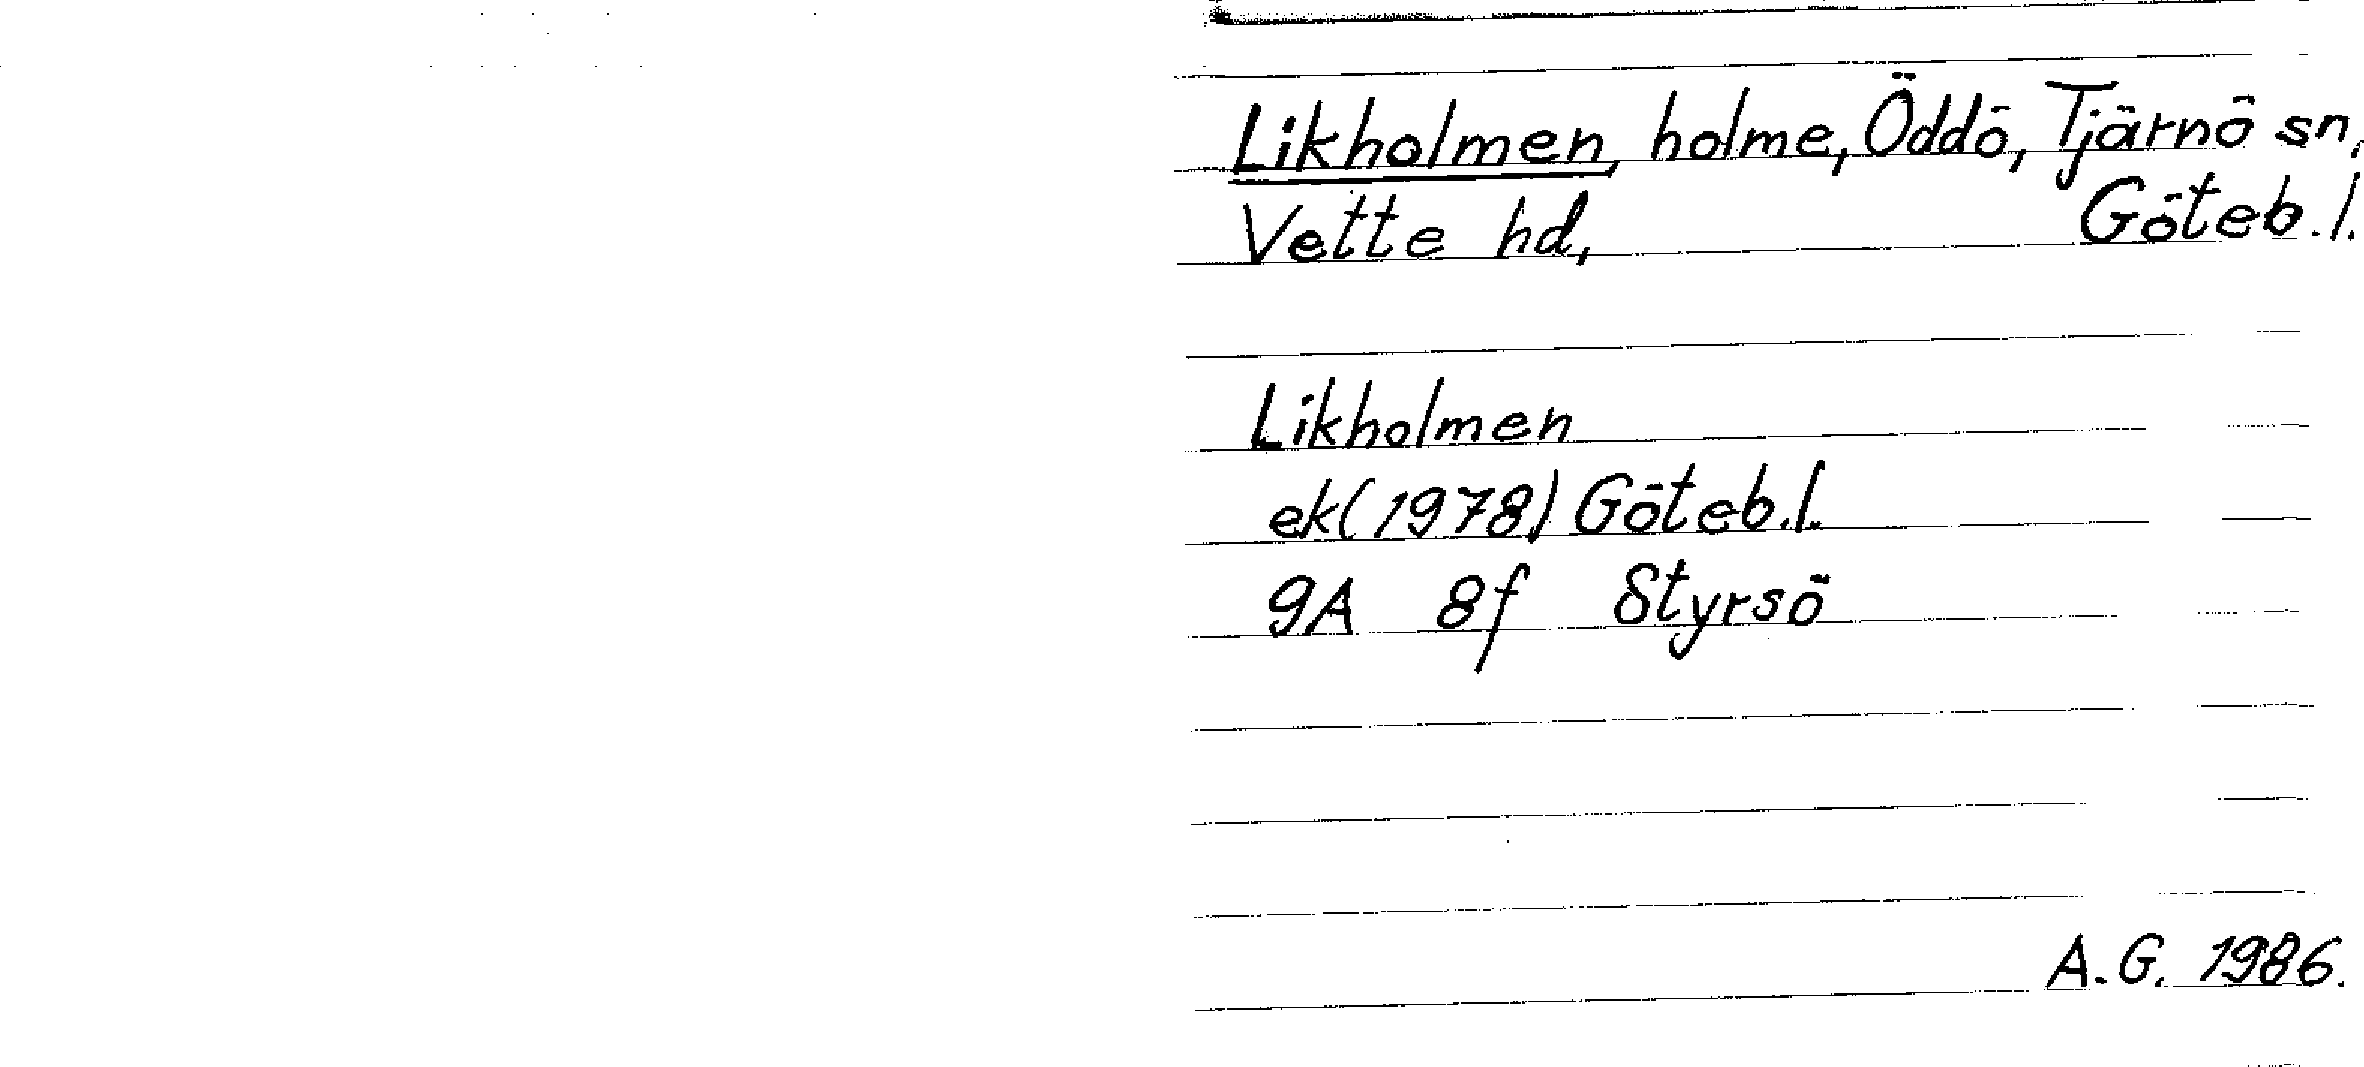 Likholmen, holme, Öddö, Tjärnö sn,
Vette hd, Göteb. l.
Likholmen
ek(1978) Göteb. l.
9A 8f Styrsö
A.G. 1986.